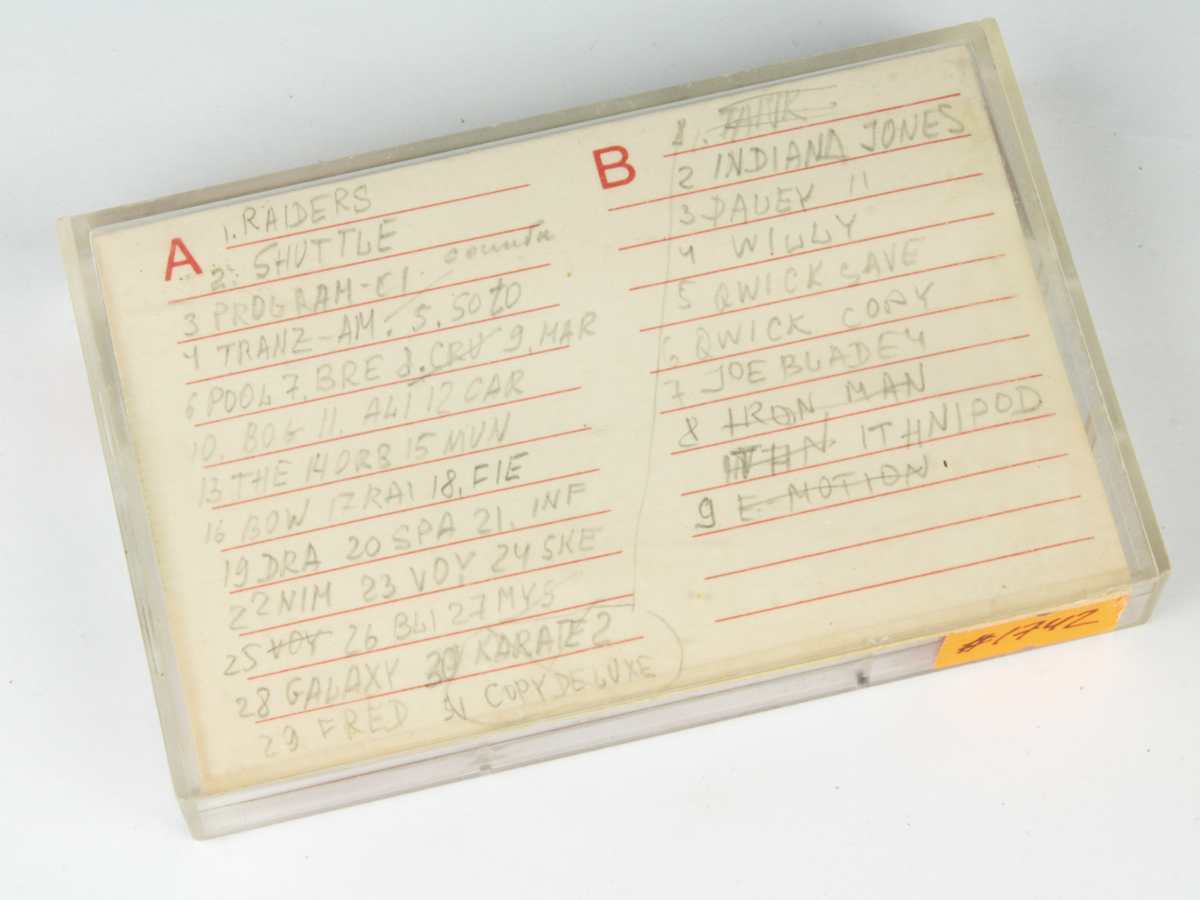 A
1. RAIDERS
2. SHUTTLE
3 PROGRAM-CI counta
4 TRANZ-AM. 5. SOZO
6 POOL 7. BRE 8. CRU 9. MAR
10. BOG 11. ALI 12 CAR
13 THE 14 ORB 15 MUN
16 BOW 17 RAI 18. EIE
19 DRA 20 SPA 21. INF
22 NIM 23 VOY 24 SKE
25 VOY 26 BLI 27 MYS
28 GALAXY 30 KARATE 2
29 FRED COPY DELUXE
B
1. TANK
2 INDIANA JONES
3 PAUEY 11
4 WILLY
5 QWICK SAVE
6 QWICK COPY
7 JOE BLADEY
8 IRON MAN
ITHNIPOD
9 E-MOTION.
#1742